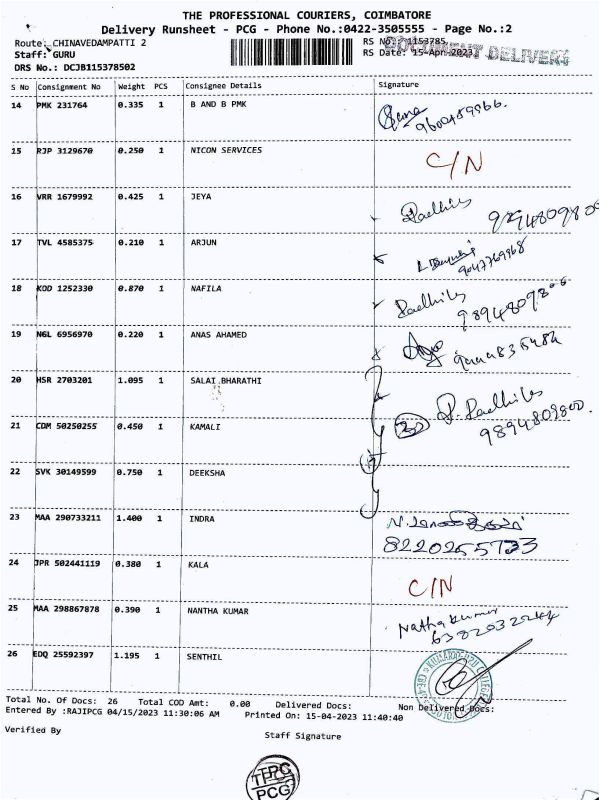 THE PROFESSIONAL COURIERS, COIMBATORE
Delivery Runsheet - PCG - Phone No.:0422-3505555 - Page No.:2
Route: CHINAVEDAMPATTI 2
RS No.: 1153785
Staff: GURU
RS Date: 15-Apr-2023
DOCUMENT DELIVERY
DRS No.: DCJB115378502
S No Consignment No Weight PCS Consignee Details Signature
14 PMK 231764 0.335 1 B AND B PMK
15 RJP 3129670 0.250 1 NICON SERVICES C/N
16 VRR 1679992 0.425 1 JEYA
17 TVL 4585375 0.210 1 ARJUN
18 KOD 1252330 0.870 1 NAFILA
19 NGL 6956970 0.220 1 ANAS AHAMED
20 HSR 2703201 1.095 1 SALAI BHARATHI
21 CDM 50250255 0.450 1 KAMALI 9894809800.
22 SVK 30149599 0.750 1 DEEKSHA
23 MAA 290733211 1.400 1 INDRA
8220265733
24 JPR 502441119 0.380 1 KALA C/N
25 MAA 298867878 0.390 1 NANTHA KUMAR Natha Kumar
26 EDQ 25592397 1.195 1 SENTHIL
Total No. Of Docs: 26 Total COD Amt: 0.00 Delivered Docs: Non Delivered Docs:
Entered By :RAJIPCG 04/15/2023 11:30:06 AM Printed On: 15-04-2023 11:40:40
Verified By Staff Signature
TPC
PCG